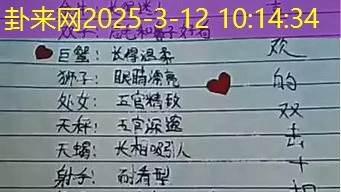 卦来网2025-3-12 10:14:34
双子：眉毛和鼻子好看
巨蟹：长得温柔
狮子：眼睛漂亮
处女：五官精致
天秤：五官深邃
天蝎：长相吸引人
射手：耐看型
欢
的
双
击